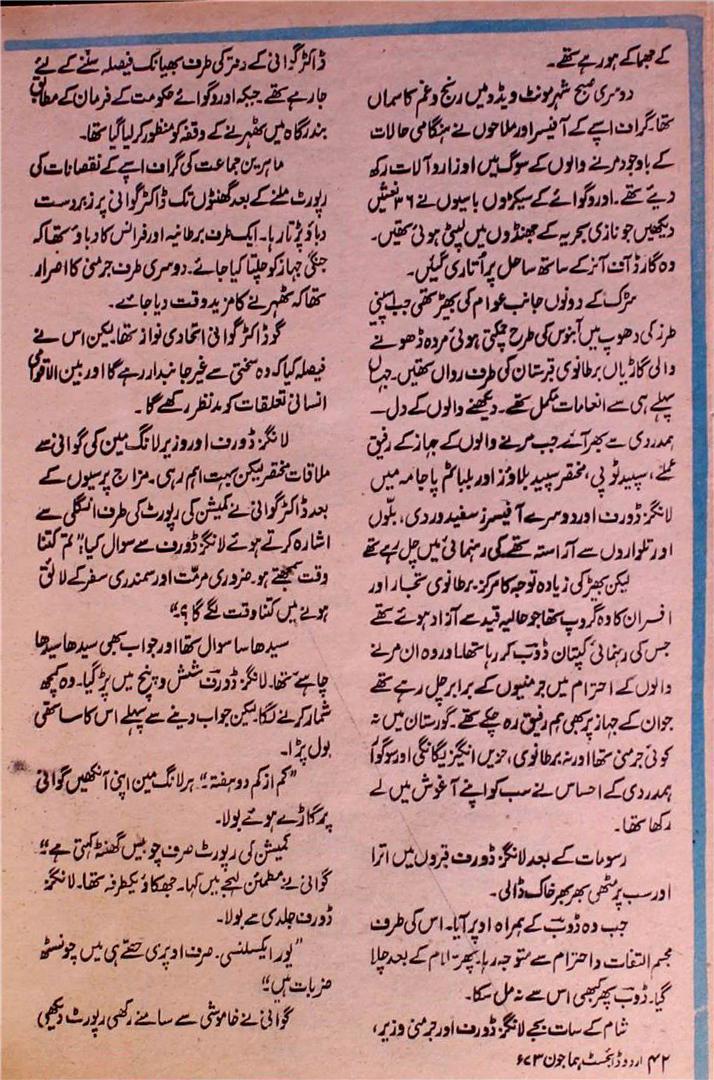 کے جھماکے ہو رہے تھے۔
دوسری صبح شہر مونٹ ویڈو میں رنج و غم کا سماں
تھا۔ گراف اسپے کے آفیسر اور ملاحوں نے ہنگامی حالات
کے باوجود مرنے والوں کے سوگ میں اوزار و آلات رکھ
دیئے تھے۔ اوروگوائے کے سیکڑوں باسیوں نے ۳۶ نعشیں
دیکھیں جو نازی بحریہ کے جھنڈوں میں لپٹی ہوئی تھیں۔
وہ گارڈ آف آنر کے ساتھ ساحل پر اُتاری گئیں۔
سڑک کے دونوں جانب عوام کی بھیڑ تھی جب اسپینی
طرز کی دھوپ میں آبنوس کی طرح چمکتی ہوئی مردہ ڈھونے
والی گاڑیاں برطانوی قبرستان کی طرف رواں تھیں۔ جہاں
پہلے ہی سے انعامات مکمل تھے۔ دیکھنے والوں کے دل
ہمدردی سے بھر آئے جب مرنے والوں کے جہاز کے رفیق
عملے، سپید ٹوپی، مختصر سپید بلاؤز اور بلباٹم پاجامہ میں
لانگز ڈورف اور دوسرے آفیسرز سفید وردی، بلّوں
اور تلواروں سے آراستہ تھے کی رہنمائی میں چل رہے تھے
لیکن بھیڑ کی زیادہ توجہ کا مرکز۔ برطانوی تجار اور
افسران کا وہ گروپ تھا جو حالیہ قید سے آزاد ہوئے تھے
جس کی رہنمائی کپتان ڈوب کر رہا تھا۔ اور وہ ان مرنے
والوں کے احترام میں جرمنیوں کے برابر چل رہے تھے
جو ان کے جہاز پر بھی ہم رفیق رہ چکے تھے۔ گورستان میں نہ
کوئی جرمنی تھا اور نہ برطانوی، حزیں انگیز یگانگی اور سوگوار
ہمدردی کے احساس نے سب کو اپنے آغوش میں لے
رکھا تھا۔
رسومات کے بعد لانگز ڈورف قبروں میں اترا
اور سب پر مٹھی بھر بھر خاک ڈالی۔
جب وہ ڈوب کے ہمراہ اوپر آیا۔ اس کی طرف
مجسم التفات و احترام سے متوجہ رہا۔ پھر کے بعد چلا
گیا۔ ڈوب پھر کبھی اس سے نہ مل سکا۔
شام کے سات بجے لانگز ڈورف اور جرمنی وزیر،
ڈاکٹر گوانی کے دفتر کی طرف بھیانک فیصلہ سننے کے لئے
جا رہے تھے۔ جبکہ اوروگوائے حکومت کے فرمان کے مطابق
بندرگاہ میں ٹھہرنے کے وقفہ کو منظور کر لیا گیا تھا۔
ماہرین جماعت کی گراف اسپے کے نقصانات کی
رپورٹ ملنے کے بعد گھنٹوں تک ڈاکٹر گوانی پر زبردست
دباؤ پڑتا رہا۔ ایک طرف برطانیہ اور فرانس کا دباؤ تھا کہ
جنگی جہاز کو چلتا کیا جائے۔ دوسری طرف جرمنی کا اصرار
تھا کہ ٹھہرنے کا مزید وقت دیا جائے۔
گو ڈاکٹر گوانی اتحادی نواز تھا لیکن اس نے
فیصلہ کیا کہ وہ سختی سے غیر جانبدار رہے گا اور بین الاقوامی
انسانی تعلقات کو مدنظر رکھے گا۔
لانگز ڈورف اور وزیر لانگ مین کی گوانی سے
ملاقات مختصر لیکن بہت اہم رہی۔ مزاج پرسیوں کے
بعد ڈاکٹر گوانی نے کمیشن کی رپورٹ کی طرف انگلی سے
اشارہ کرتے ہوئے لانگز ڈورف سے سوال کیا: "تم کتنا
وقت سمجھتے ہو۔ ضروری مرمّت اور سمندری سفر کے لائق
ہونے میں کتنا وقت لگے گا؟"
سیدھا سا سوال تھا اور جواب بھی سیدھا سیدھا
چاہیے تھا۔ لانگز ڈورف شش و پنج میں پڑ گیا۔ وہ کچھ
شمار کرنے لگا لیکن جواب دینے سے پہلے اس کا ساتھی
بول پڑا۔
"کم از کم دو ہفتہ۔" ہر لانگ مین اپنی آنکھیں گوانی
پر گاڑے ہوئے بولا۔
کمیشن کی رپورٹ صرف چوبیس گھنٹہ کہتی ہے"
گوانی نے مطمئن لہجے میں کہا۔ جھکاؤ یکطرفہ تھا۔ لانگز
ڈورف جلدی سے بولا۔
"یور ایکسلنسی۔ صرف اوپری حصّے ہی میں چونسٹھ
ضربات ہیں"
گوانی نے خاموشی سے سامنے رکھی رپورٹ دیکھی
۴۲ اردو ڈائجسٹ ہما جون ۷۳ء